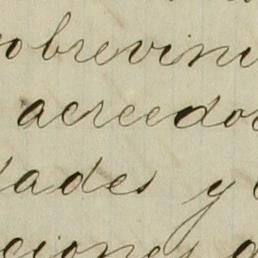 sobrevini
acreedor
dades y
ciones